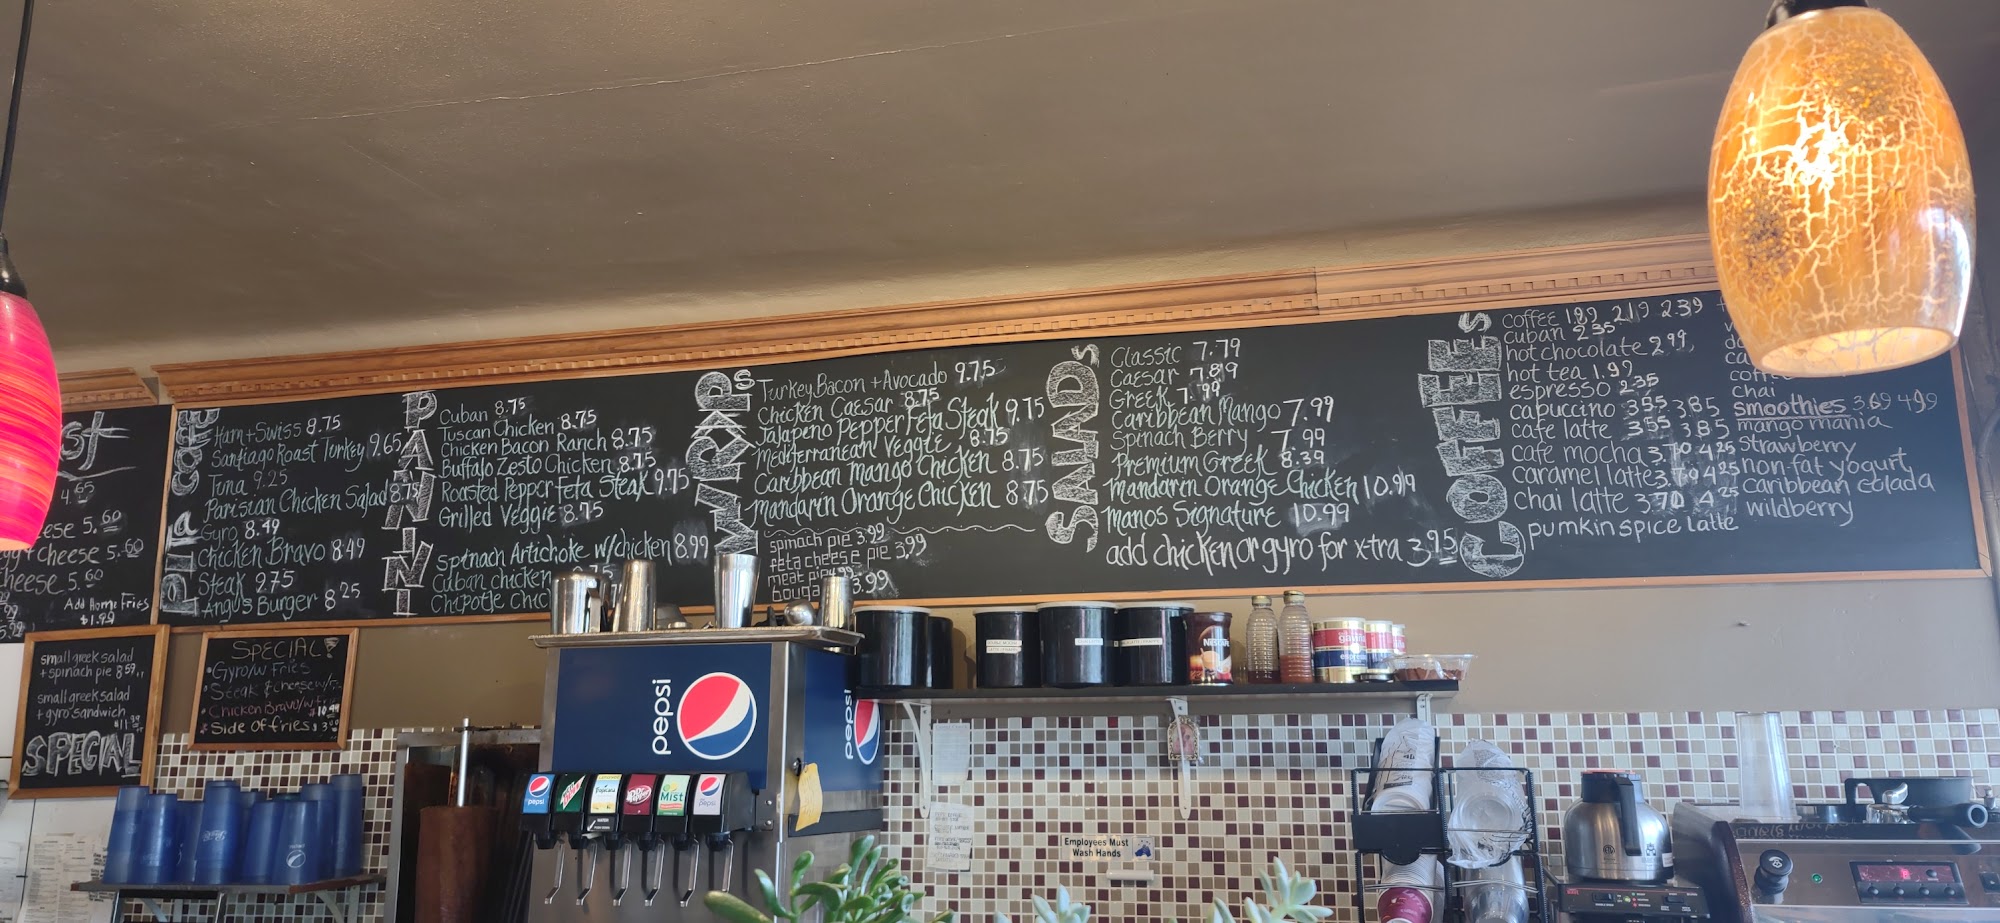 4.65
5.60
cheese 5.60
5.60
Add Home Fries
$1.99
small greek salad
+ spinach pie 8.59
small greek salad
+ gyro sandwich
$11.99
SPECIAL
SPECIAL
Gyro/w Fries
Steak & cheese w/
Chicken Bravo/w
10.99
Side of fries $3.00
Ham + Swiss 8.75
Santiago Roast Turkey 9.65
Tuna 9.25
Parisian Chicken Salad 8.75
Gyro 8.49
Chicken Bravo 8.49
Steak 9.75
Angus Burger 8.25
PANINI
Cuban 8.75
Tuscan Chicken 8.75
Chicken Bacon Ranch 8.75
Buffalo Zesto Chicken 8.75
Roasted Pepper Feta Steak 9.75
Grilled Veggie 8.75
Spinach Artichoke w/chicken 8.99
Cuban chicken
Chipotle
WRAPS
Turkey Bacon + Avocado 9.75
Chicken Caesar 8.75
Jalapeno Pepper Feta Steak 9.75
Mediterranean Veggie 8.75
Caribbean Mango Chicken 8.75
Mandarin Orange Chicken 8.75
spinach pie 3.99
feta cheese pie 3.99
meat pie
3.99
SALADS
Classic 7.79
Caesar
Greek 7.99
Caribbean Mango 7.99
Spinach Berry 7.99
Premium Greek 8.39
Mandarin Orange Chicken 10.99
Manos Signature 10.99
add chicken or gyro for x-tra 3.95
COFFEES
coffee 1.89 2.19 2.39
cuban 2.35
hot chocolate 2.99
hot tea 1.99
espresso 2.35
capuccino 3.55 3.85
cafe latte 3.55 3.85
cafe mocha 3.70 4.25
caramel latte 3.70 4.25
chai latte 3.70 4.25
pumkin spice latte
chai
smoothies 3.69 4.99
mango mania
strawberry
non-fat yogurt
caribbean colada
wildberry
pepsi
pepsi
pepsi
Tropicana
Dr Pepper
Mist
pepsi
NESCAFE
gaviña
espresso
Employees Must
Wash Hands